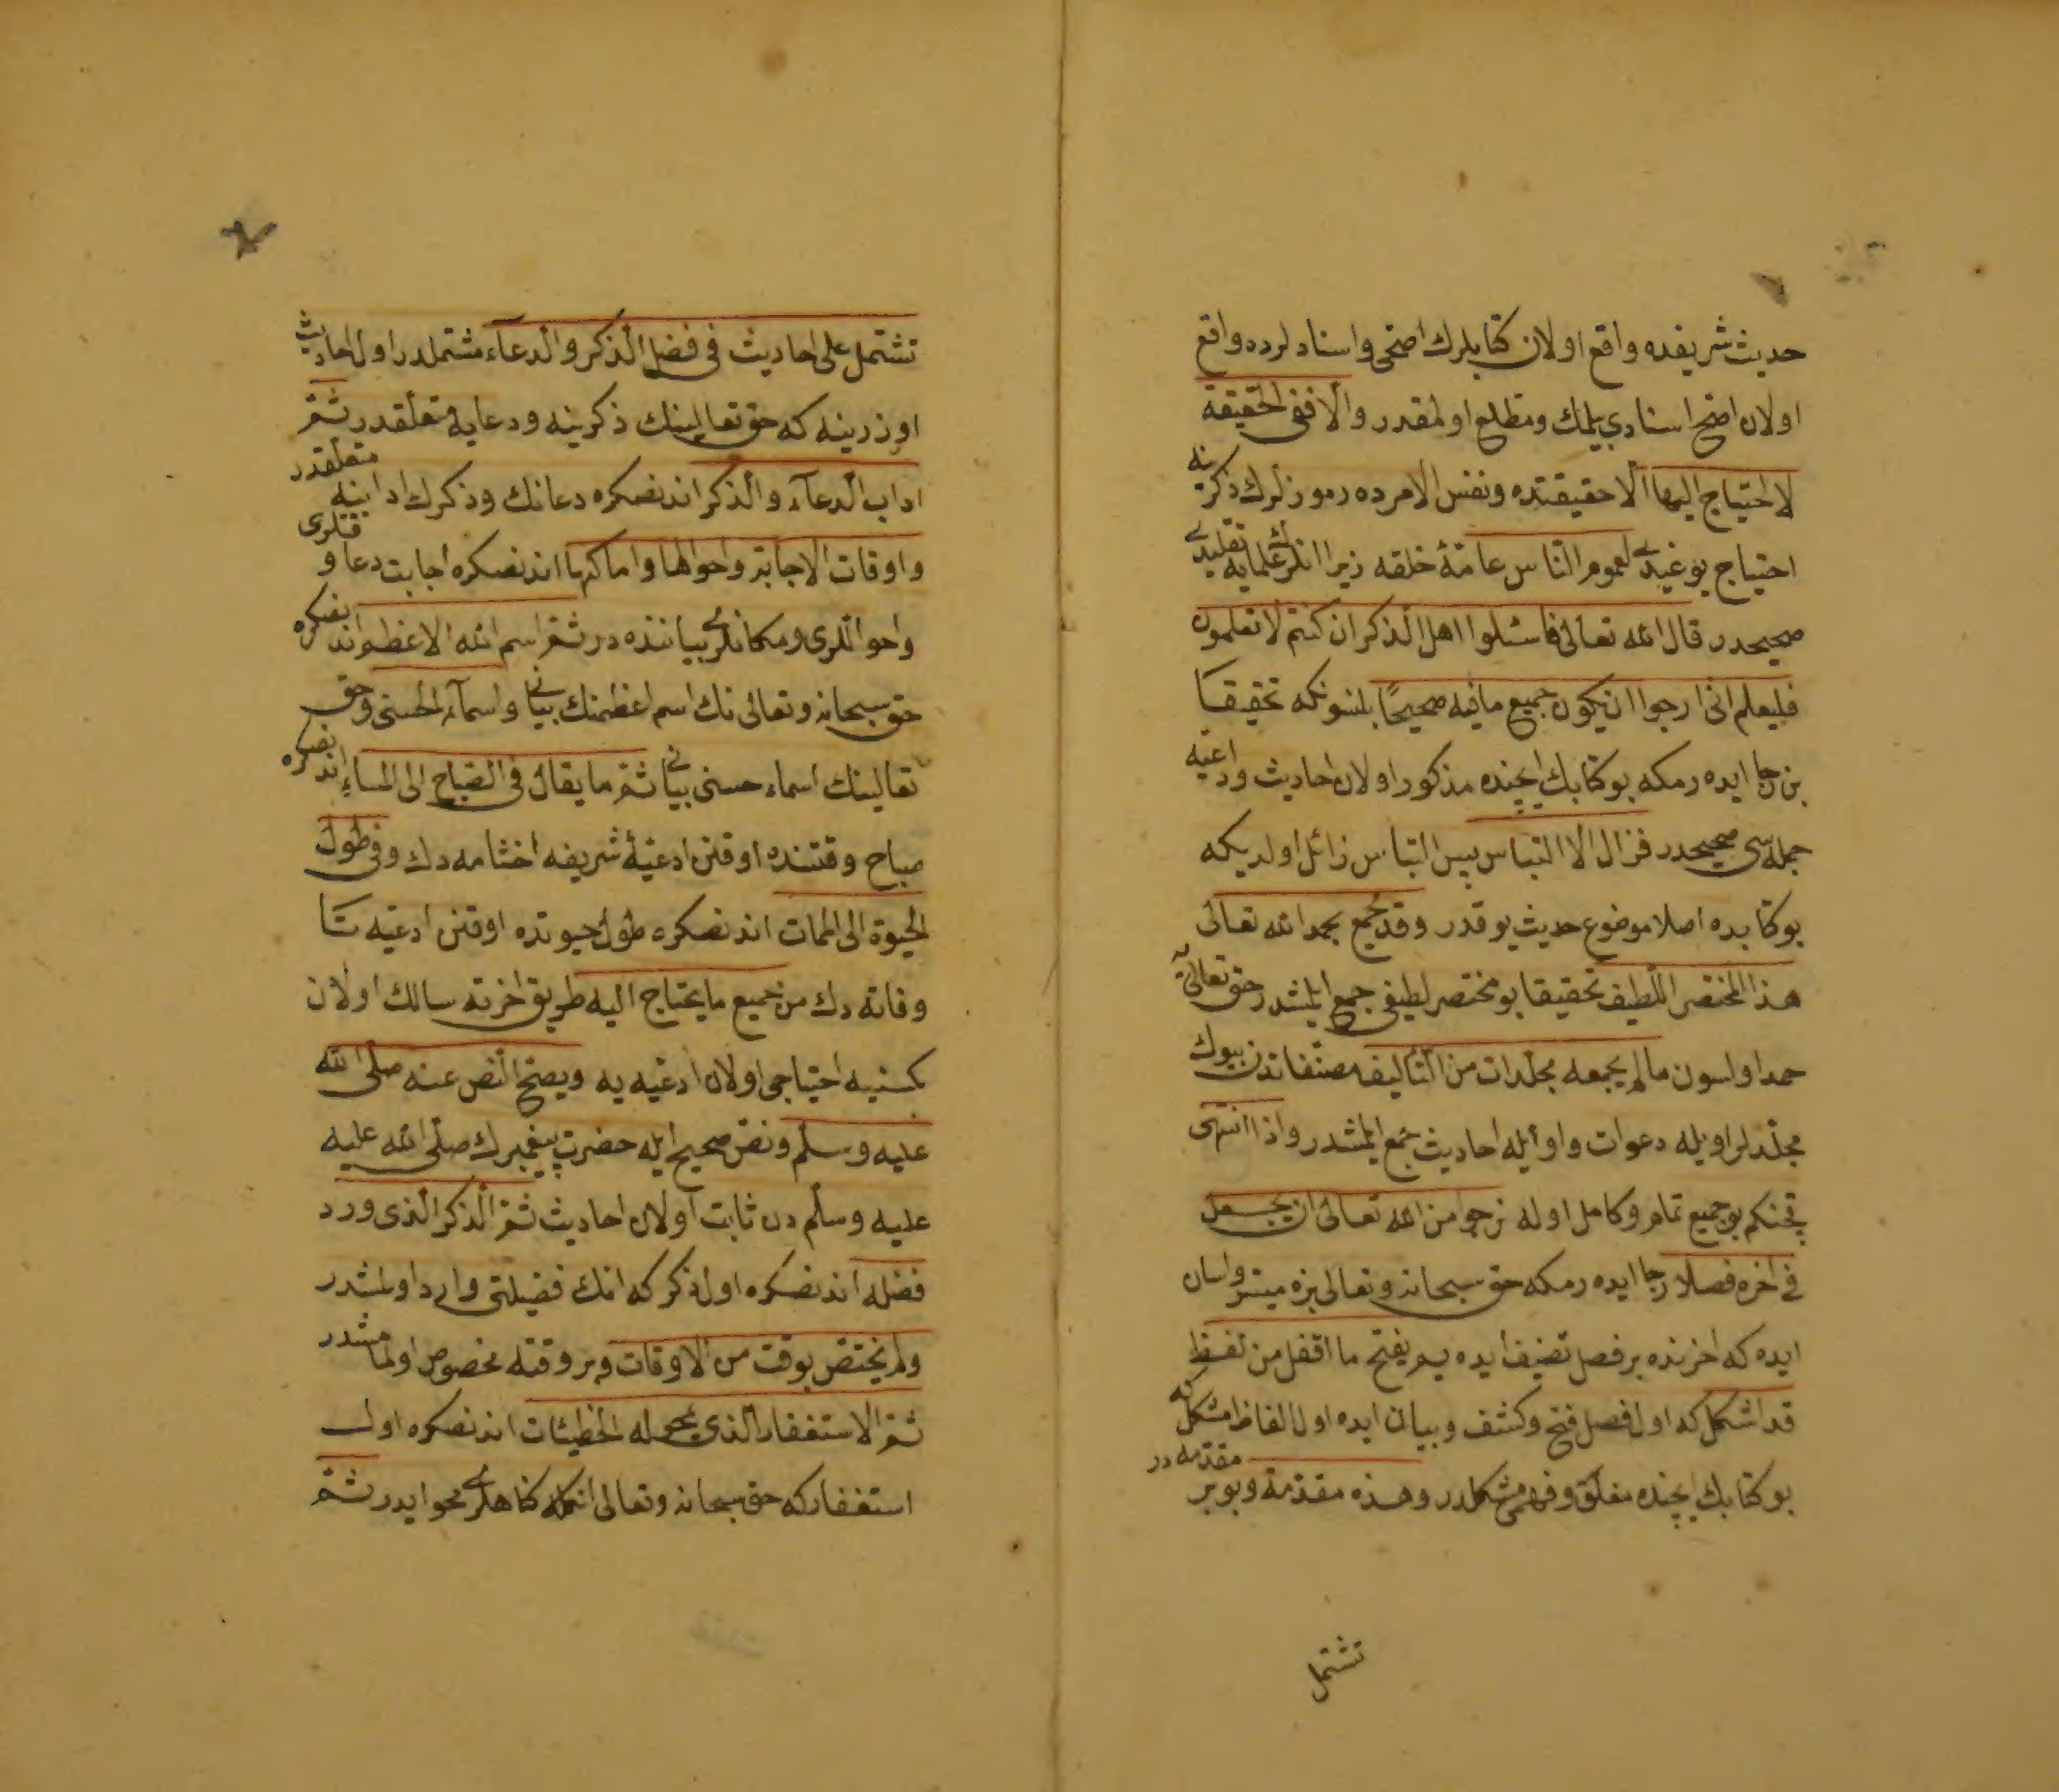 حديث شريفده واقع اولان كتابلرك اصحى واسنادلرده واقع
اولان اصح اسنادى بيلمك ومطلع اولمقدر والا ففى الحقيقة
لا احتياج اليها الا حقيقتده ونفس الامرده رموزلرك ذكرينه
احتياج يوغيدى لعموم الناس عامۀ خلقه زيرا انلرك علمايه تقليدى
صحيحدر قال الله تعالى فاسئلوا اهل الذكر ان كنتم لا تعلمون
فليعلم انى ارجوا ان يكون جميع ما فيه صحيحًا بلنسونكه تحقيقا
بن رجا ايده رمكه بو كتابك ايچنده مذكور اولان احاديث وادعيه
جمله سى صحيحدر فزال الالتباس پس التباس زائل اولديكه
بو كتابده اصلا موضوع حديث يوقدر وقد جمع بحمد الله تعالى
هذا المختصر اللطيف تحقيقا بو مختصر لطيف جمع ايلمشدر حق تعالايه
حمد اولسون ما لم يجمعه مجلدات من التأليف مصنفاتدن بيوك
مجلدلر اويله دعوات واويله احاديث جمع ايلمشدر واذا انتهى
قچنكم بو جميع تمام وكامل اوله نرجوا من الله تعالى ان يجعل
فى اخره فصلا رجا ايده رمكه حق سبحانه وتعالى بزه ميسر واسان
ايده كه اخرنده بر فصل تصنيف ايده يم يفتح ما اقفل من لفظ
قد اشكل كه اول فصل فتح وكشف وبيان ايده اول الفاظ مشكل كه
بو كتابك ايچنده مغلق وفهمى مشكلدر وهذه مقدمة وبو بر مقدمه در
تشتمل
تشتمل على احاديث فى فضل الذكر والدعاء مشتملدر اول احاديث
اوزرينه كه حق تعالينك ذكرينه ودعايه متعلقدر ثم
اداب الدعاء والذكر اندنصكره دعانك وذكرك ادابنه متعلقدر
واوقات الاجابة واحوالها واماكنها اندنصكره اجابت دعا وقتلرى
واحواللرى ومكانلرى بياننده در ثم اسم الله الاعظم اندنصكره
حق سبحانه وتعالى نك اسم اعظمنك بيانى واسمآء الحسنى وحق
تعالينك اسماء حسنى بيانى ثم ما يقال فى الصباح الى المساء اندنصكره
صباح وقتنده اوقنن ادعيۀ شريفه اخشامه دك وفى طول
الحيوة الى الممات اندنصكره طول حيوتده اوقنن ادعيه تا
وفاته دك من جميع ما يحتاج اليه طريق اخرته سالك اولان
كمسنيه احتياجى اولان ادعيه يه ويصح النص عنه صلى الله
عليه وسلم ونص صحيح ايله حضرت پيغمبرك صلى الله عليه
عليه وسلم دن ثابت اولان احاديث ثم الذكر الذى ورد
فضله اندنصكره اول ذكر كه انك فضيلتى وارد اولمشدر
ولم يختص بوقت من الاوقات وبر وقته مخصوص اولمامشدر
ثم الاستغفار الذى يمحى له الخطيئات اندنصكره اول
استغفاركه حق سبحانه وتعالى انكله كناهلرى محو ايدر ثم